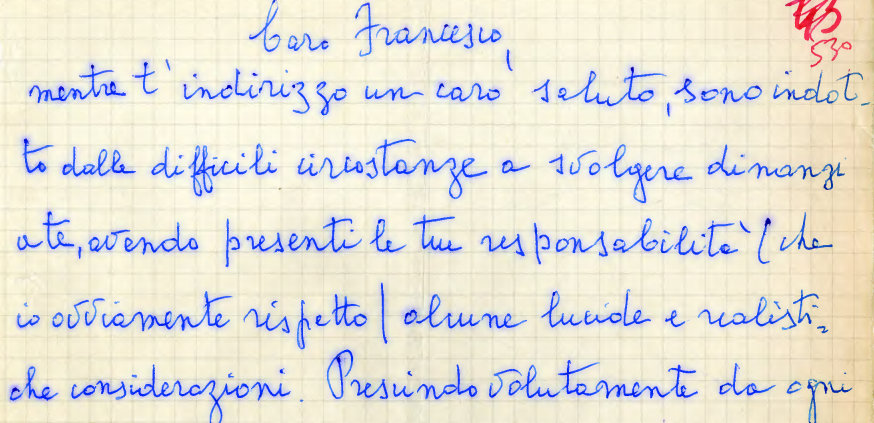 Caro Francesco,
530
mentre t'indirizzo un caro saluto, sono indot-
to dalle difficili circostanze a svolgere dinanzi
a te, avendo presenti le tue responsabilità (che
io ovviamente rispetto) alcune lucide e realisti-
che considerazioni. Prescindo volutamente da ogni